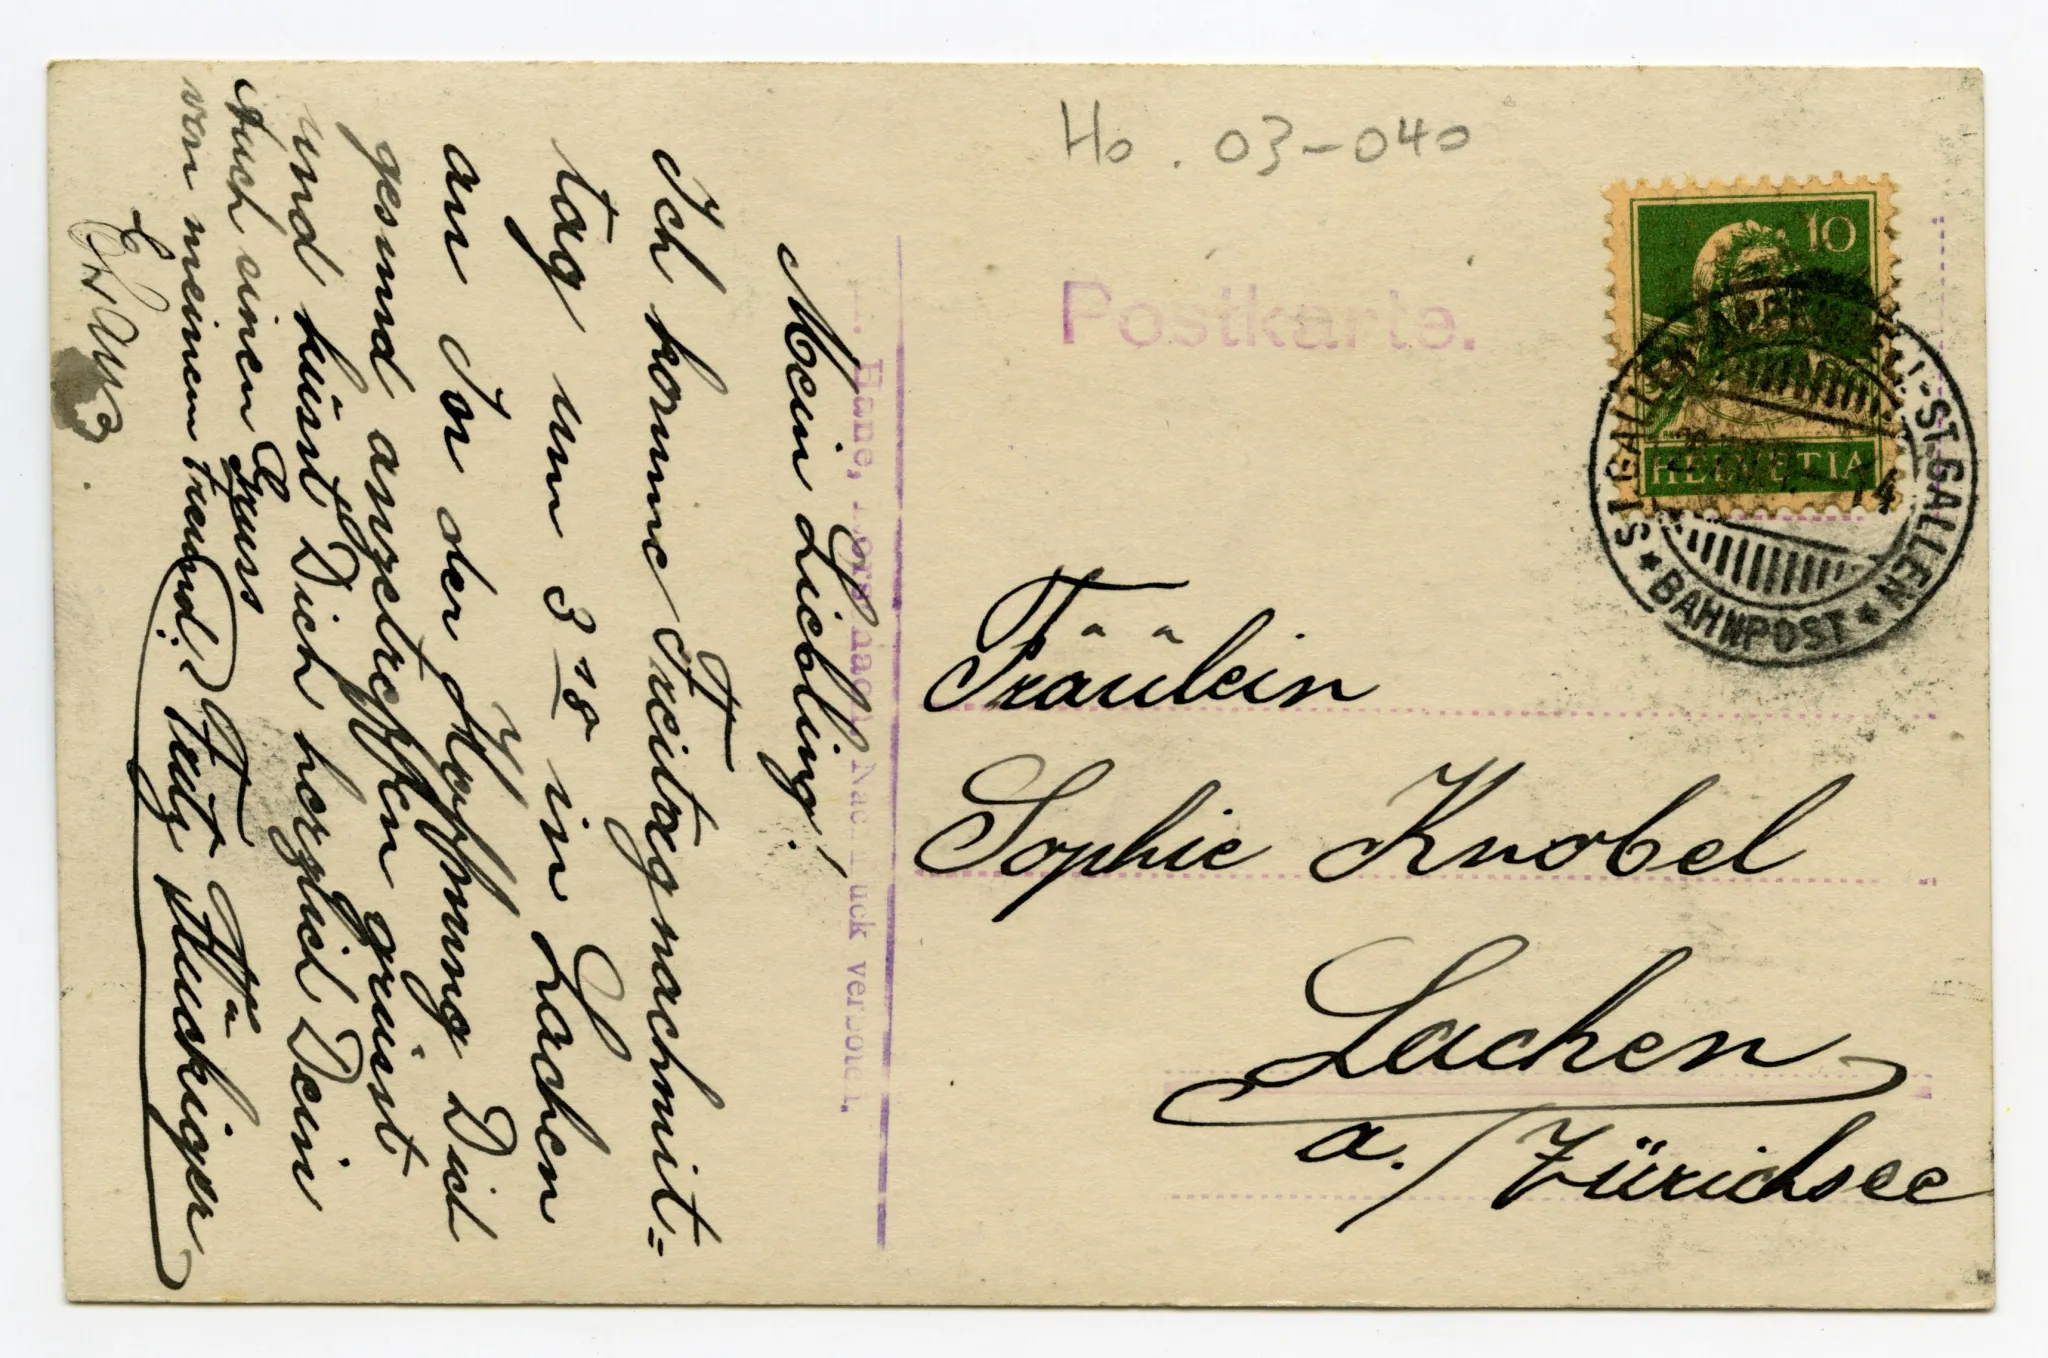 Mein Liebling!
Ich komme Freitagnachmit=
tag um 3 18 in Lachen
an. In der Hoffnung Dich
gesund anzutreffen grüsst
und küsst Dich herzlich Dein
Auch einen Gruss
von meinem Freund:
Ho. 03-040
Postkarte.
10
HELVETIA
ST. GALLEN-APPENZELL-ST. GALLEN
* BAHNPOST *
14
Nachdruck verboten.
Fräulein
Sophie Knobel
Lachen
a./Zürichsee